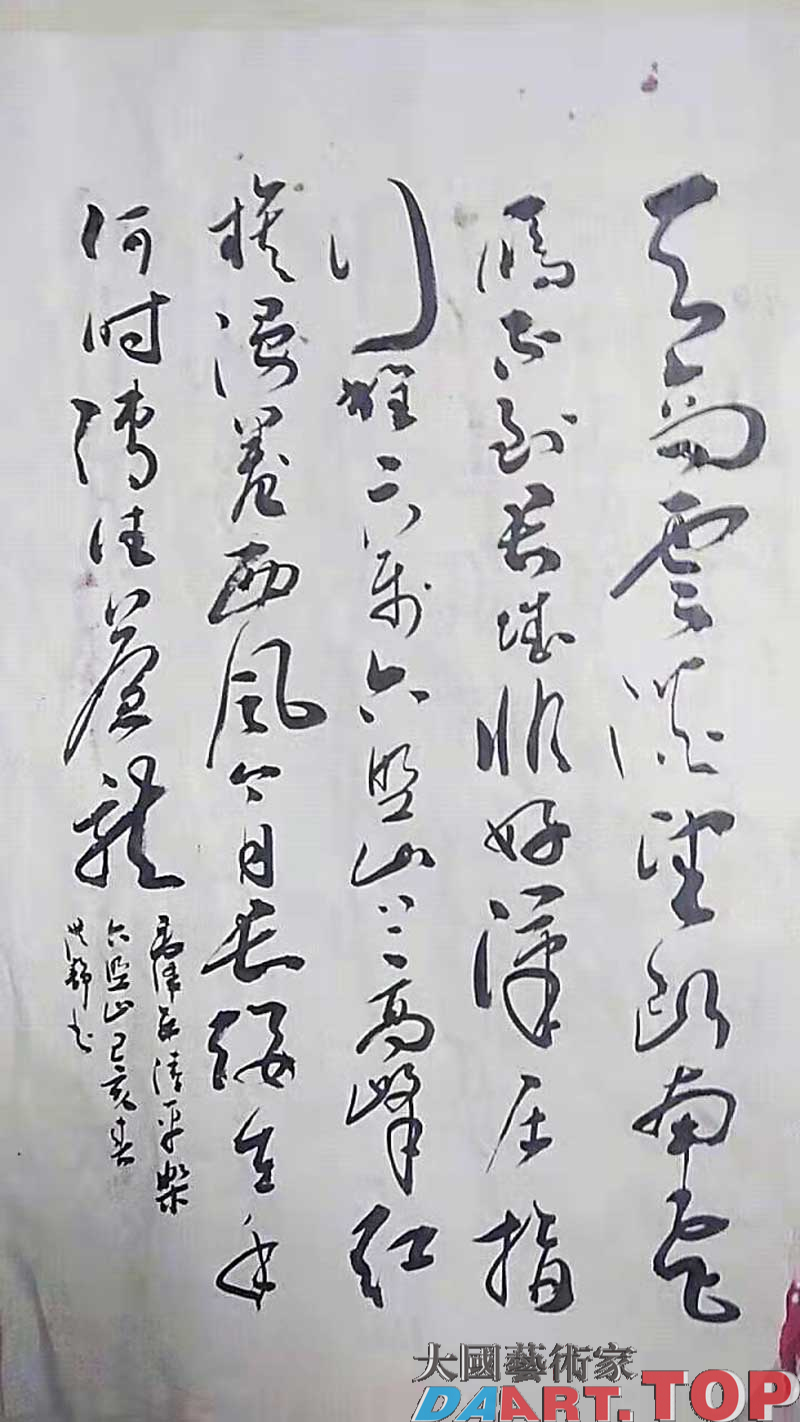 天高雲淡望断南飛
鴈不到长城非好漢屈指
行程二万六盘山上高峰红
旗漫卷西风今日长缨在手
何时缚住苍龍
毛泽东清平樂
六盘山己亥春
书
大國藝術家
DAART.TOP